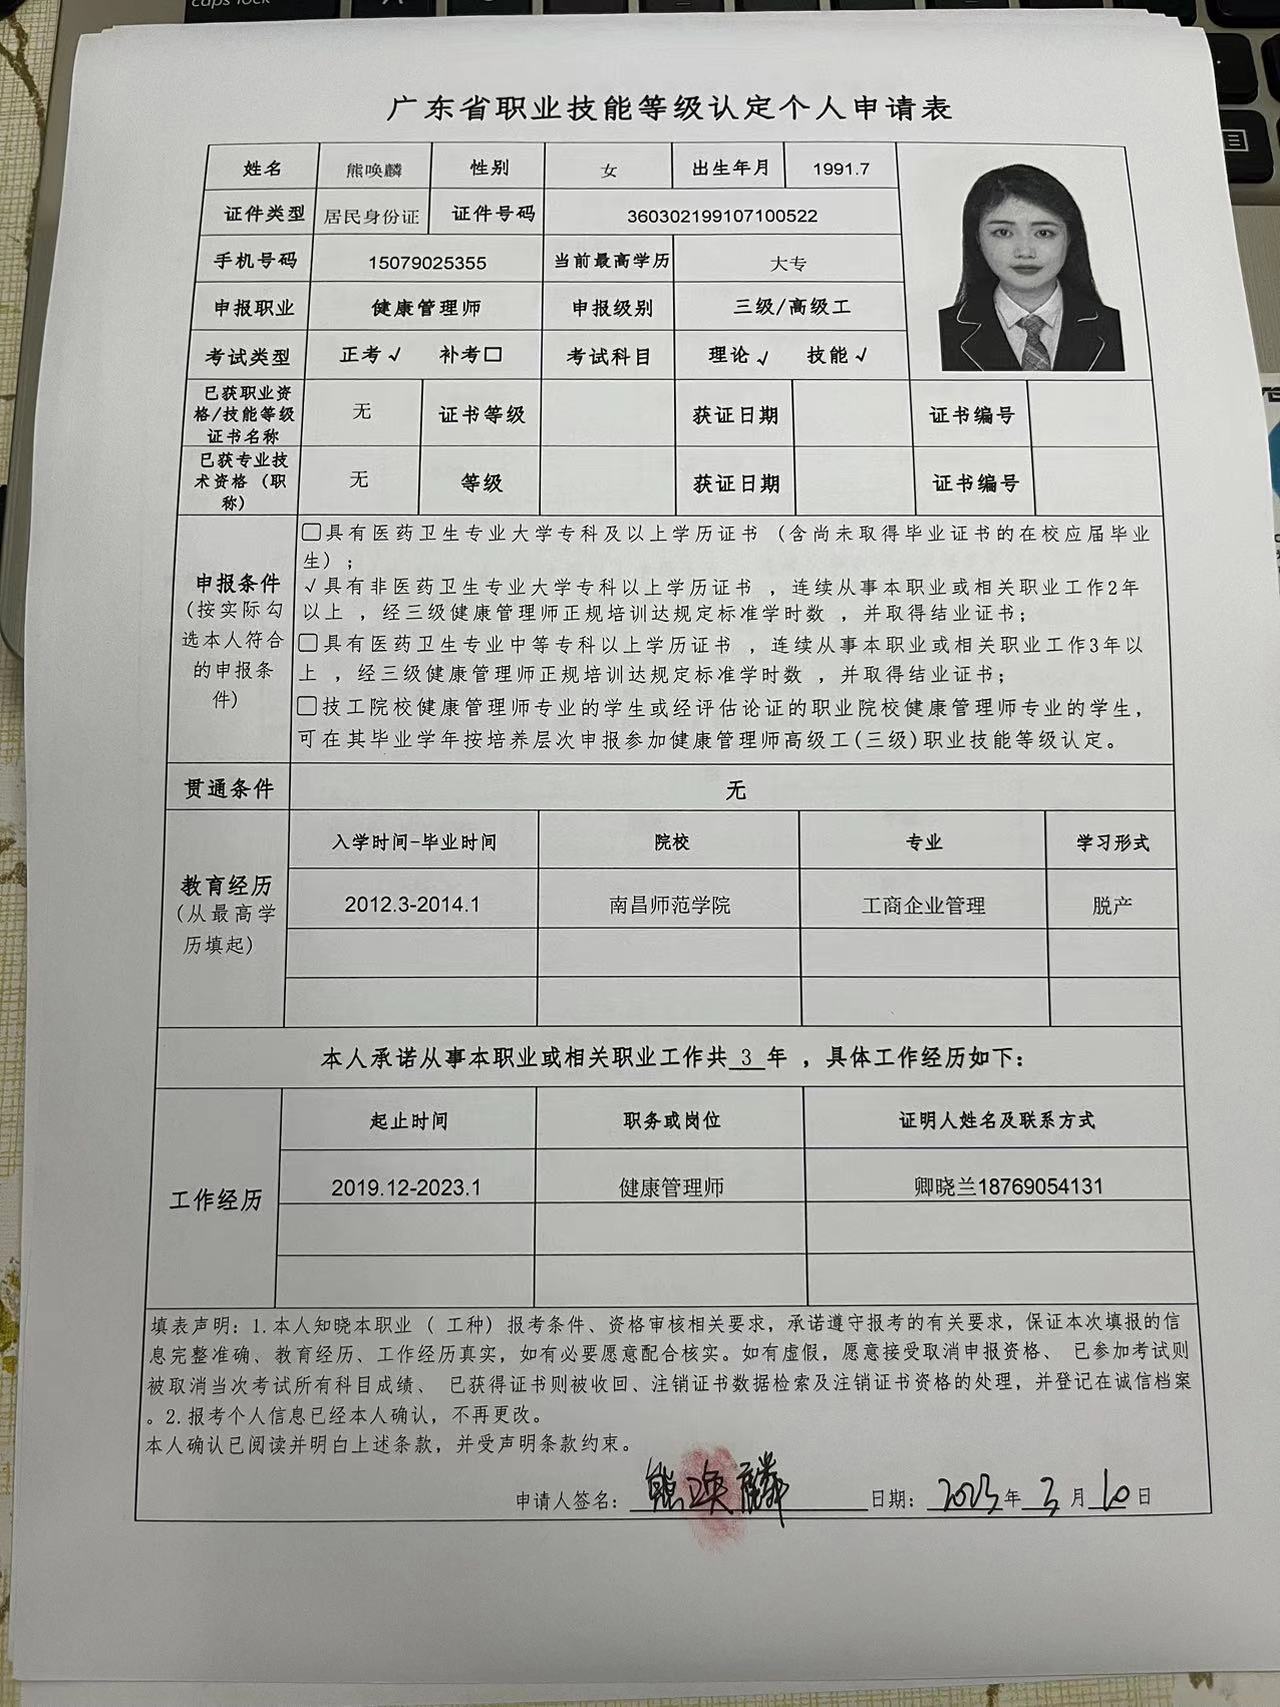 caps lock
广东省职业技能等级认定个人申请表
姓名 熊唤麟 性别 女 出生年月 1991.7
证件类型 居民身份证 证件号码 360302199107100522
手机号码 15079025355 当前最高学历 大专
申报职业 健康管理师 申报级别 三级/高级工
考试类型 正考√ 补考□ 考试科目 理论√ 技能√
已获职业资
格/技能等级
证书名称
无 证书等级 获证日期 证书编号
已获专业技
术资格（职
称）
无 等级 获证日期 证书编号
申报条件
(按实际勾
选本人符合
的申报条
件)
□具有医药卫生专业大学专科及以上学历证书（含尚未取得毕业证书的在校应届毕业
生）；
√具有非医药卫生专业大学专科以上学历证书 ，连续从事本职业或相关职业工作2年
以上 ，经三级健康管理师正规培训达规定标准学时数 ，并取得结业证书；
□具有医药卫生专业中等专科以上学历证书 ，连续从事本职业或相关职业工作3年以
上 ，经三级健康管理师正规培训达规定标准学时数 ，并取得结业证书；
□技工院校健康管理师专业的学生或经评估论证的职业院校健康管理师专业的学生，
可在其毕业学年按培养层次申报参加健康管理师高级工(三级)职业技能等级认定。
贯通条件 无
教育经历
(从最高学
历填起)
入学时间-毕业时间 院校 专业 学习形式
2012.3-2014.1 南昌师范学院 工商企业管理 脱产
本人承诺从事本职业或相关职业工作共 3 年 ，具体工作经历如下：
工作经历
起止时间 职务或岗位 证明人姓名及联系方式
2019.12-2023.1 健康管理师 卿晓兰18769054131
填表声明：1.本人知晓本职业（ 工种）报考条件、资格审核相关要求，承诺遵守报考的有关要求，保证本次填报的信
息完整准确、教育经历、工作经历真实，如有必要愿意配合核实。如有虚假，愿意接受取消申报资格、 已参加考试则
被取消当次考试所有科目成绩、 已获得证书则被收回、注销证书数据检索及注销证书资格的处理，并登记在诚信档案
。2.报考个人信息已经本人确认，不再更改。
本人确认已阅读并明白上述条款，并受声明条款约束。
申请人签名：熊唤麟 日期：2023年3月10日